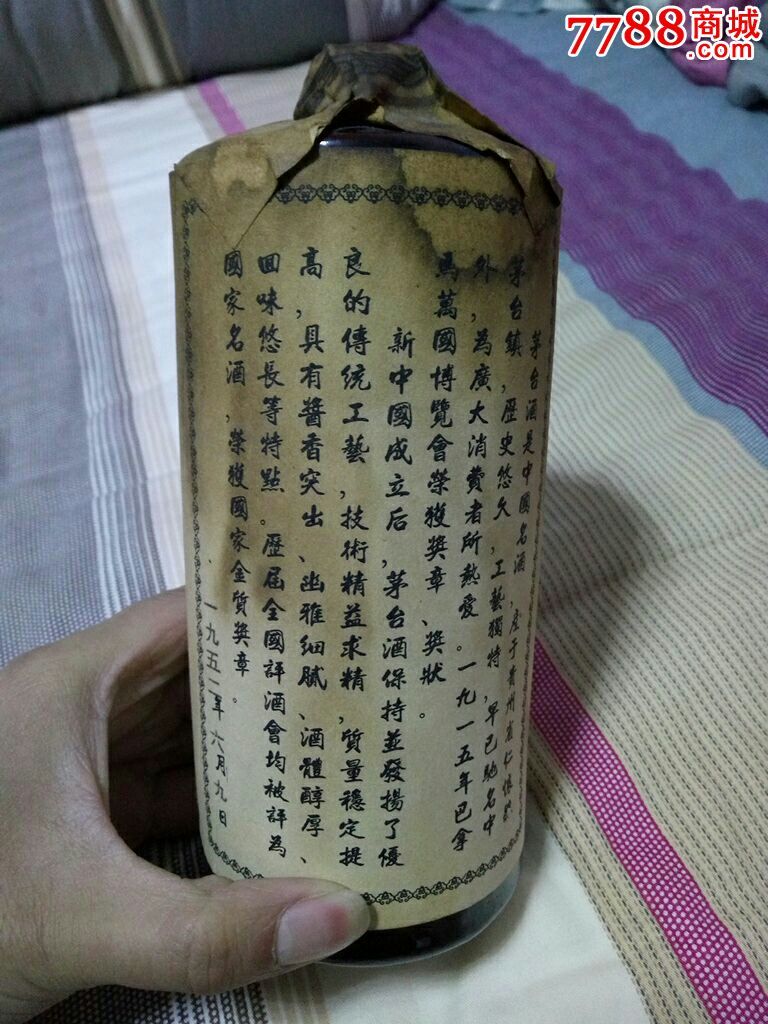 7788商城
.com
茅台酒是中國名酒，產于貴州省仁懷縣
茅台鎮，歷史悠久，工藝獨特，早已馳名中
外，為廣大消費者所熱愛。一九一五年巴拿
馬萬國博覽會榮獲獎章、獎狀。
新中國成立后，茅台酒保持並發揚了優
良的傳統工藝，技術精益求精，質量穩定提
高，具有醬香突出、幽雅細膩、酒體醇厚、
回味悠長等特點。歷屆全國評酒會均被評為
國家名酒，榮獲國家金質獎章。
一九五二年六月九日